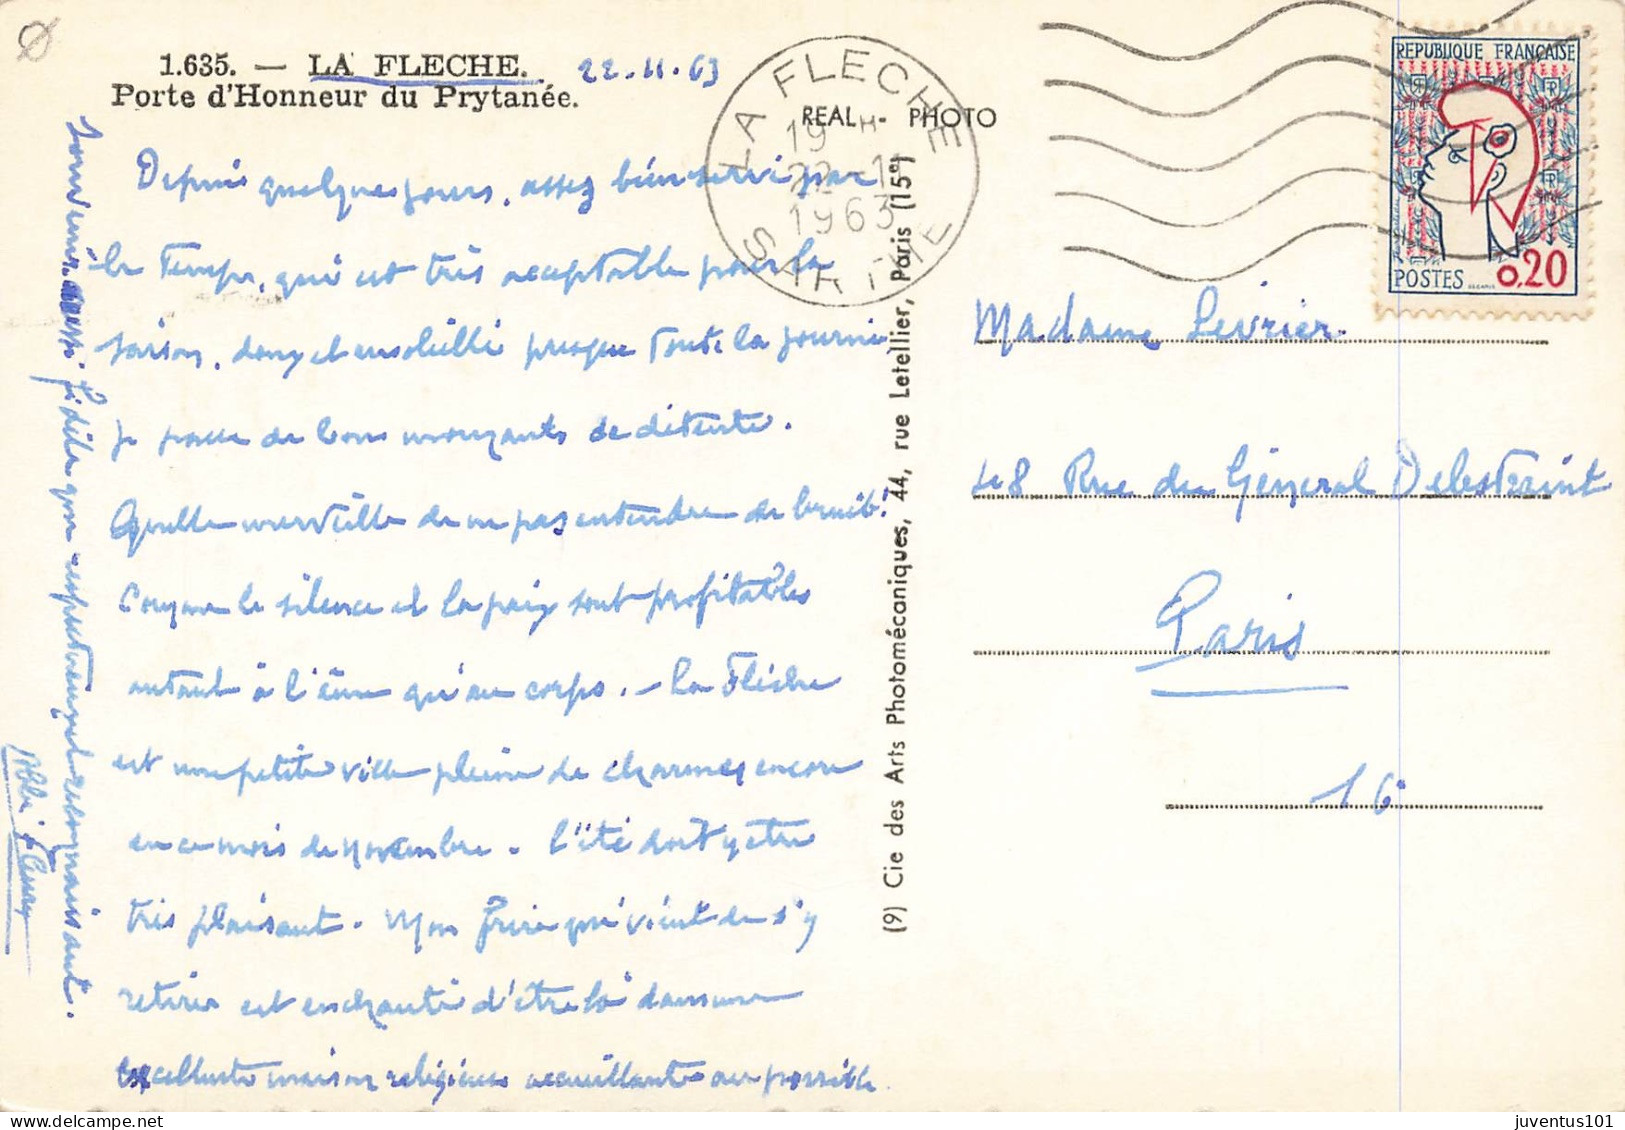 1.635. — LA FLECHE. 22.11.63
Porte d'Honneur du Prytanée.
REAL - PHOTO
LA FLECHE
19 H
22-1
1963
SARTHE
REPUBLIQUE FRANÇAISE
POSTES
0.20
Depuis quelques jours, assez bien servi par
le Temps, qui est très acceptable pour la
saison, doux et ensoleillé presque toute la journée
je passe de bons moments de détente.
Quelle merveille de ne pas entendre de bruit!
Comme le silence et la paix sont profitables
autant à l'âme qu'au corps. - La Flèche
est une petite ville pleine de charmes encore
en ce mois de novembre. L'été doit y être
très plaisant. Mon frère qui vient de s'y
retirer est enchanté d'être là dans une
excellente maison religieuse accueillante au possible.
Souvenir aussi fidèle que respectueux et reconnaissant.
Abbé Fleury
(9) Cie des Arts Photomécaniques, 44, rue Letellier, Paris (15e)
Madame Levrier
48 Rue du Général Delestraint
Paris
16e
juventus101